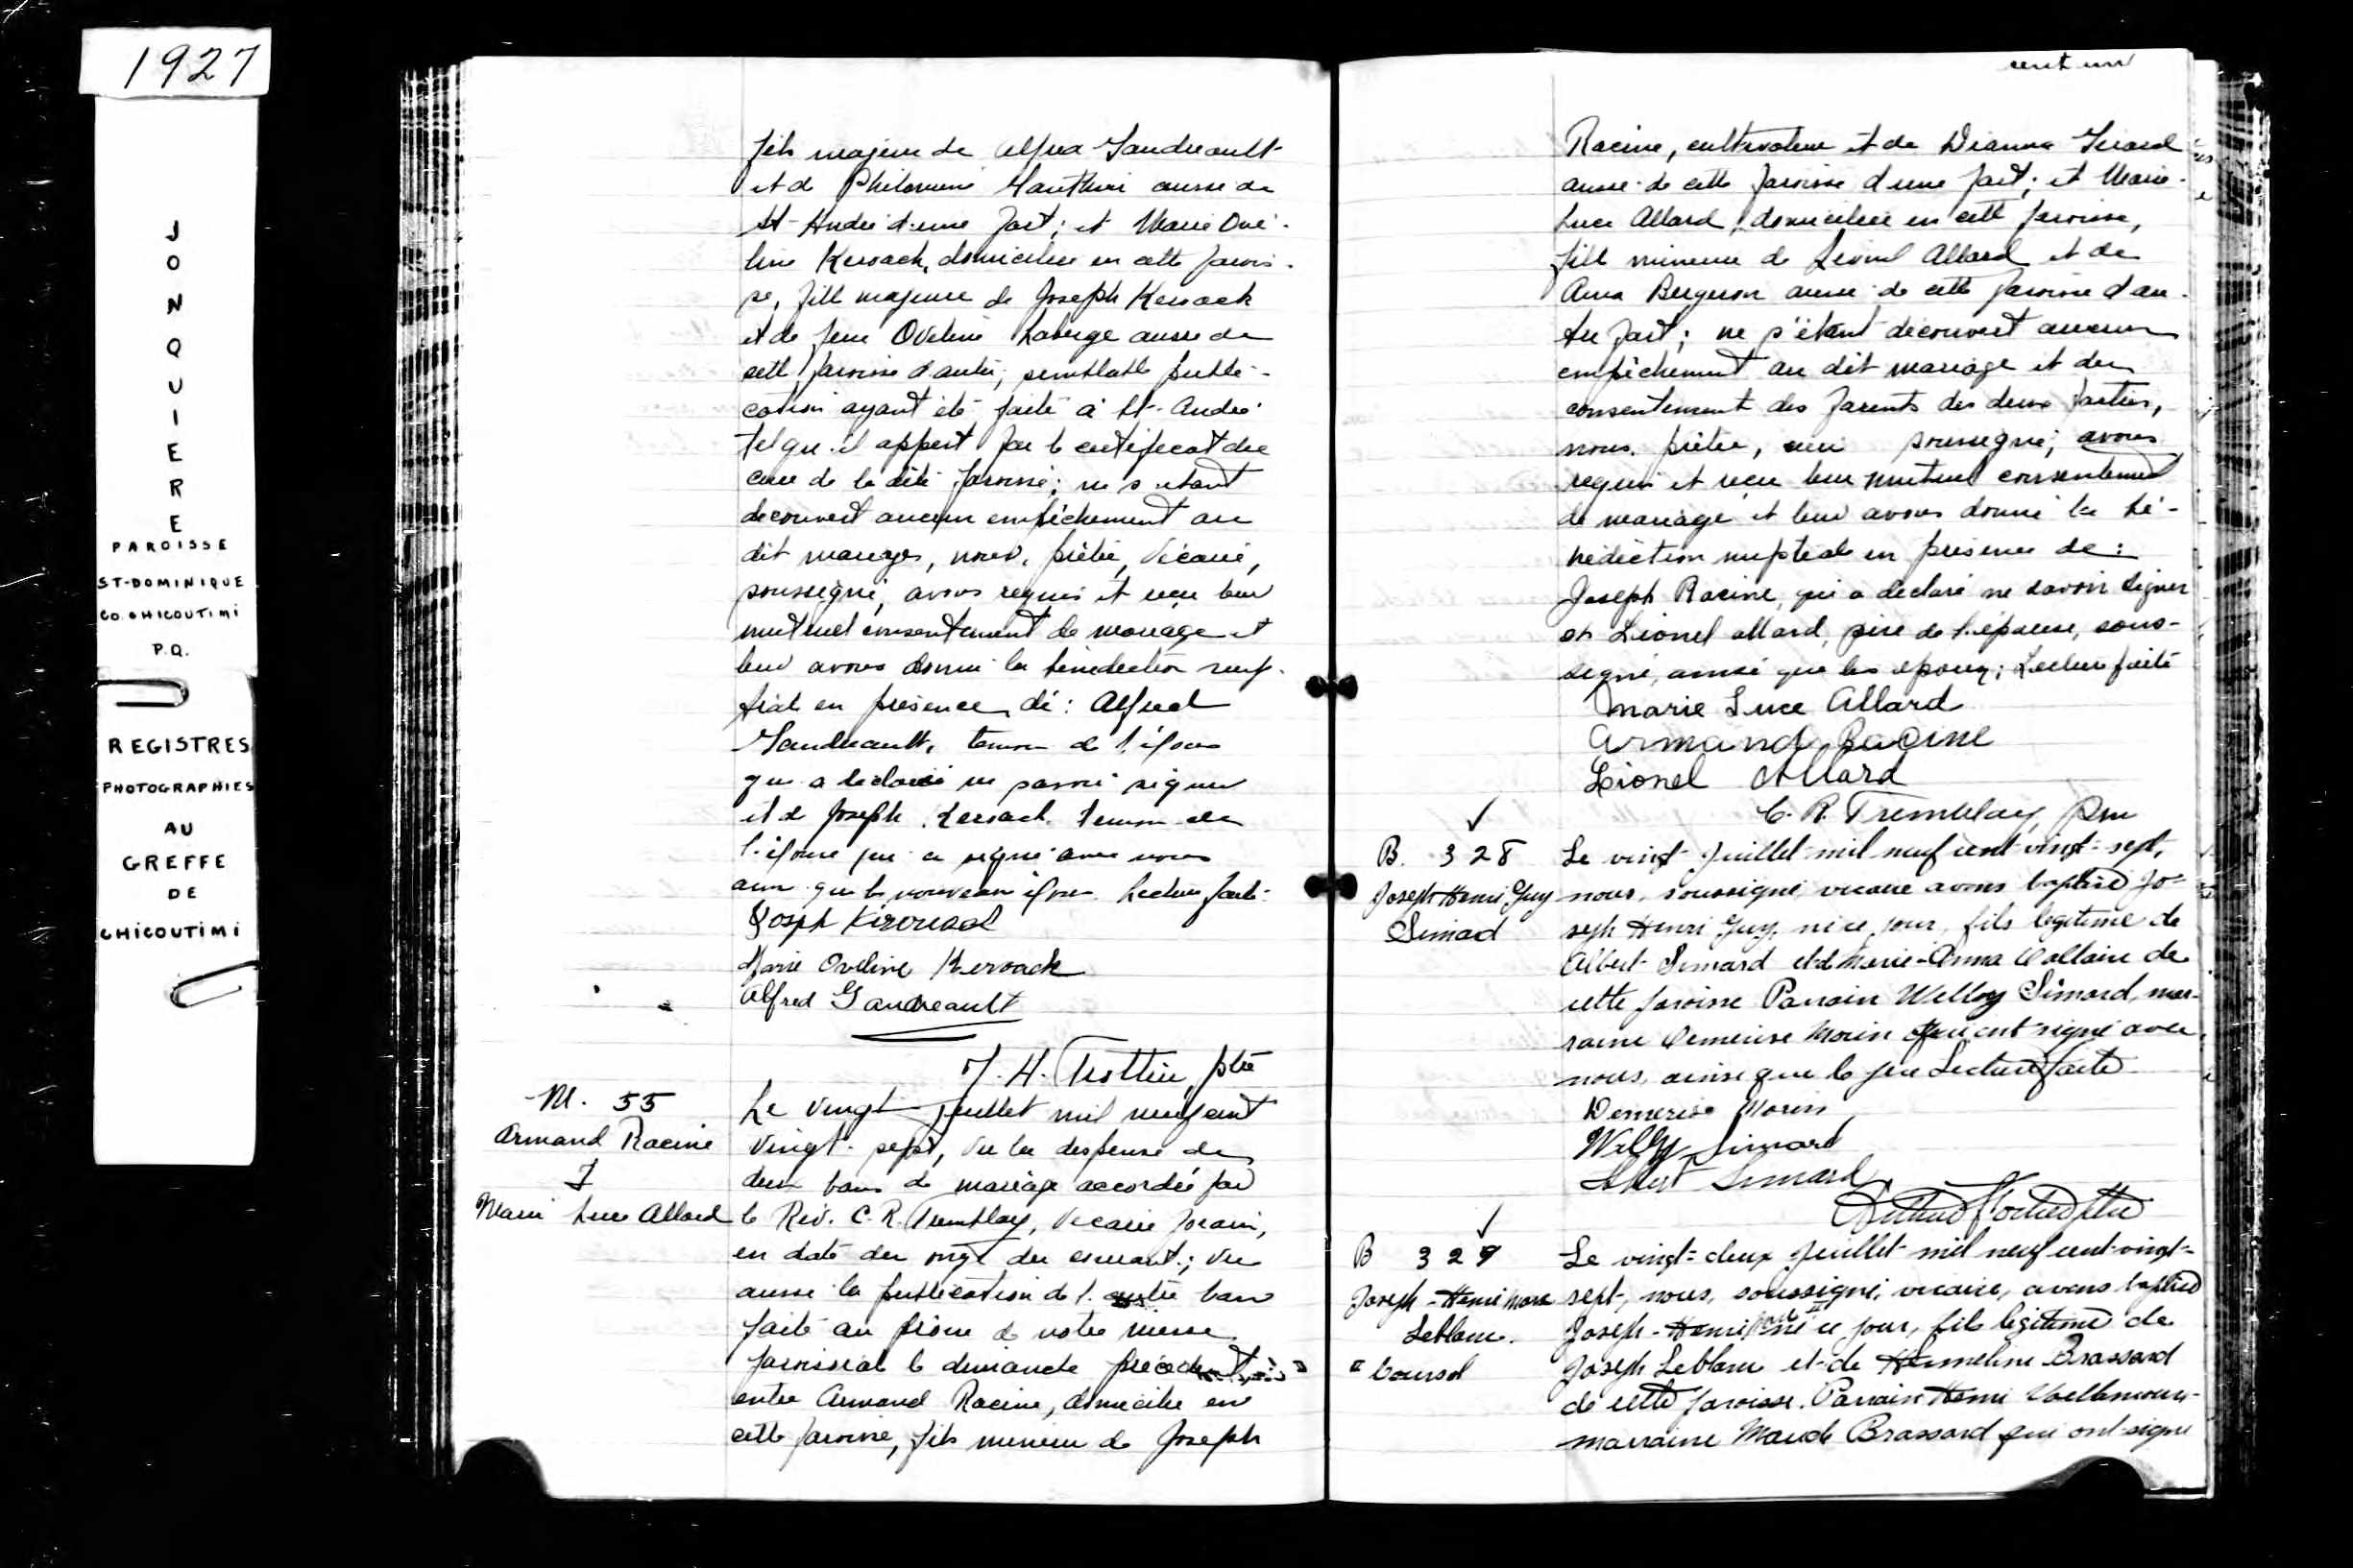 1927
JONQUIERE
PAROISSE
ST-DOMINIQUE
CO. CHICOUTIMI
P.Q.
REGISTRES
PHOTOGRAPHIES
AU
GREFFE
DE
CHICOUTIMI
fils majeur de Alfred Gaudreault
et de Philomène Gauthier aussi de
St-André d'une part; et Marie Ové-
line Kervack, domiciliée en cette parois-
se, fille majeure de Joseph Kervack
et de feue Oveline Laberge aussi de
cette paroisse d'autre; semblable publi-
cation ayant été faite à St-André
tel qu'il appert par le certificat du
curé de la dite paroisse; ne s'étant
découvert aucun empêchement au
dit mariage, nous, prêtre, vicaire,
soussigné, avons requis et reçu leur
mutuel consentement de mariage et
leur avons donné la bénédiction nup-
tiale en présence de: Alfred
Gaudreault, témoin de l'époux
qui a déclaré ne savoir signer
et de Joseph Kervack témoin de
l'épouse qui a signé avec nous
ainsi que les nouveaux époux. Lecture faite.
Joseph Kirouack
Marie Oveline Kervack
Alfred Gaudreault
J. H. Trottier, ptre
M. 55
Armand Racine
&
Marie Luce Allard
Le vingt juillet mil neuf cent
vingt-sept, vu la dispense de
deux bans de mariage accordée par
le Rév. C. R. Tremblay, vicaire forain,
en date du onze du courant; vu
aussi la publication de l'autre ban
faite au prône de notre messe
paroissiale le dimanche précédent,
entre Armand Racine, domicilié en
cette paroisse, fils mineur de Joseph
cent un
Racine, cultivateur et de Dianna Girard
aussi de cette paroisse d'une part; et Marie-
Luce Allard, domiciliée en cette paroisse,
fille mineure de Lionel Allard et de
Anna Bergeron aussi de cette paroisse d'au-
tre part; ne s'étant découvert aucun
empêchement au dit mariage et du
consentement des parents des deux parties,
nous, prêtre, curé soussigné, avons
requis et reçu leur mutuel consentement
de mariage et leur avons donné la bé-
nédiction nuptiale en présence de:
Joseph Racine, qui a déclaré ne savoir signer
et Lionel Allard, père de l'épouse, sous-
signé, ainsi que les époux; Lecture faite
Marie Luce Allard
Armand Racine
Lionel Allard
C. R. Tremblay, Ptre
B. 328
Joseph Henri Guy
Simard
Le vingt juillet mil neuf cent vingt-sept,
nous, soussigné, vicaire avons baptisé Jo-
seph Henri Guy, né ce jour, fils légitime de
Albert Simard et de Marie-Anna Dallaire de
cette paroisse Parrain Willey Simard, mar-
raine Demerise Morin qui ont signé avec
nous, ainsi que le père Lecture faite
Demerise Morin
Willy Simard
Albert Simard
B 329
Joseph-Henri Marc
Leblanc.
Le vingt-deux juillet mil neuf cent vingt-
sept, nous, soussigné, vicaire, avons baptisé
Joseph-Henri né ce jour, fils légitime de
Joseph Leblanc et de Hermeline Brassard
de cette paroisse. Parrain Henri Vaillancourt
marraine Maude Brassard qui ont signé